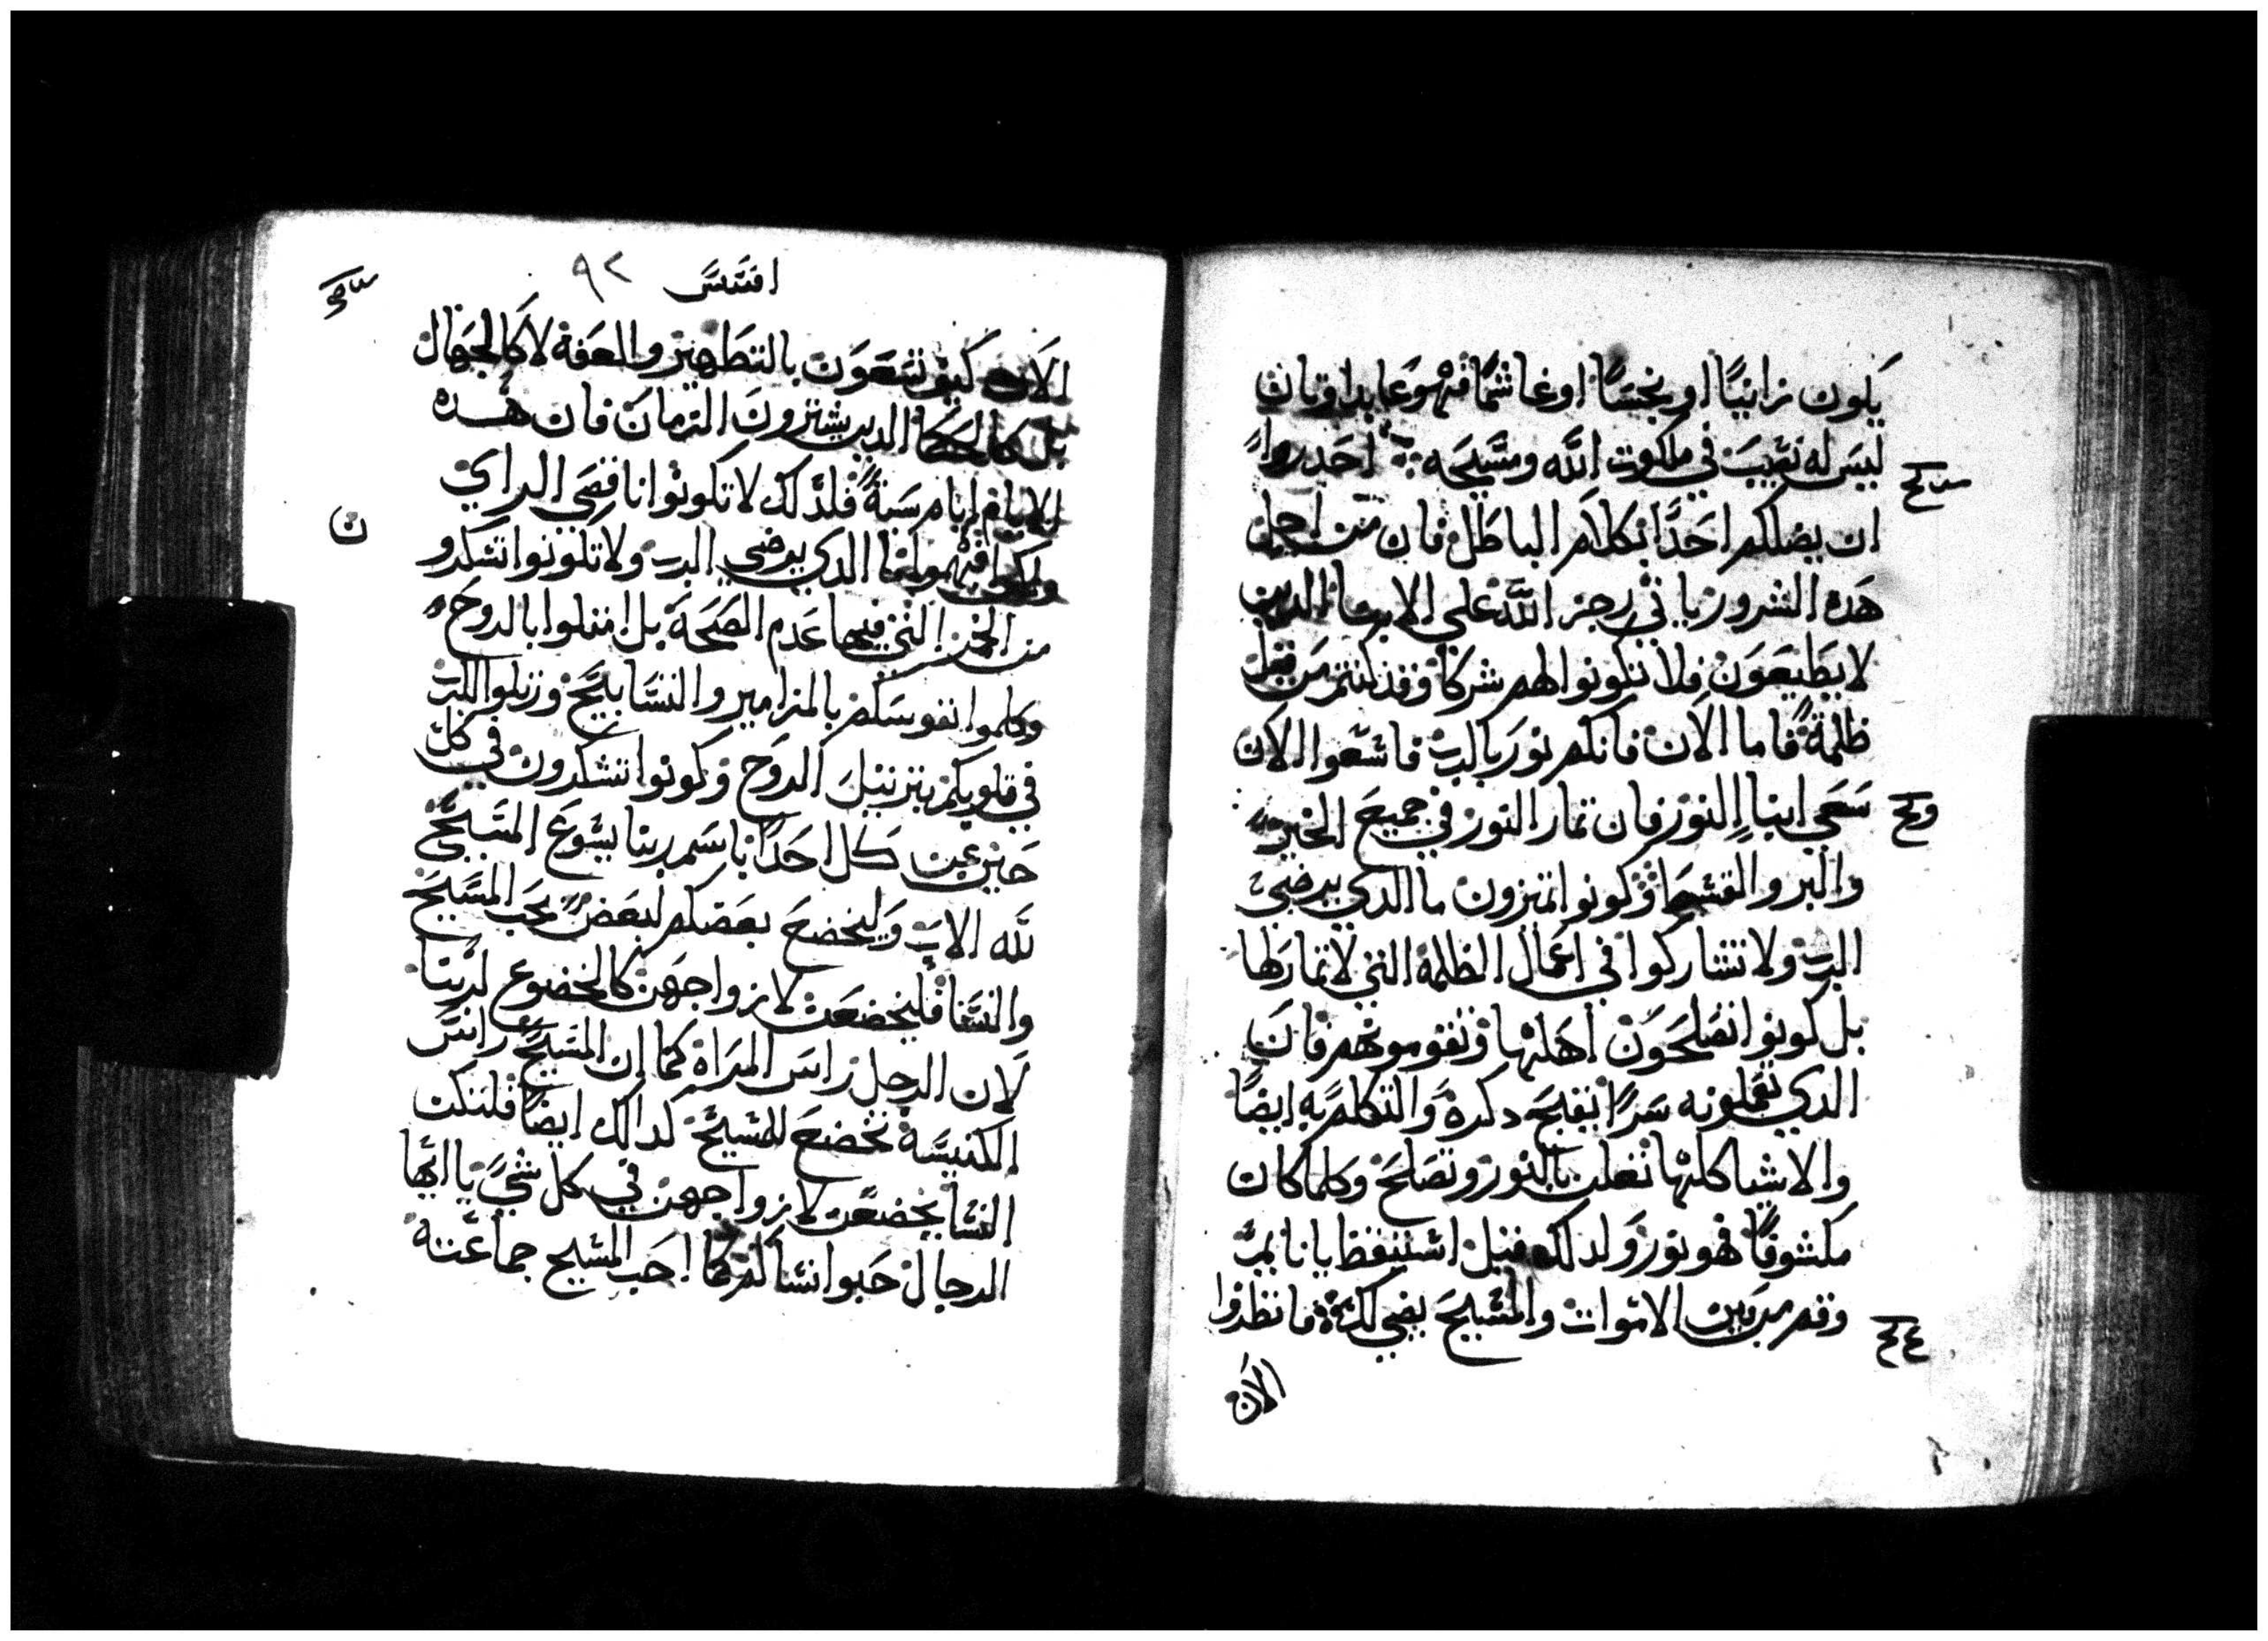 يكون زانيًا او نجسًا او غاشمًا فهو عابد اوتان
ليس له نصيب في ملكوت الله ومسيحه احدروا
ان يضلكم احدًا بكلام الباطل فان من اجل
هده الشرور ياتي رجز الله علي الابنا الدين
لا يطيعون فلا تكونوا لهم شركا وقد كنتم من قبل
ظلمة فاما الان فانكم نور بالرب فاسعوا الان
سعي ابنا النور فان تمار النور في جميع الخير
والبر والقسط وكونوا تميزون ما الدي يرضي
الرب ولا تشاركوا في اعمال الظلمة التي لا تمار لها
بل كونوا تصلحون اهلها وتقومونهم فان
الدي يقولونه سرًا يقبح دكره والتكلم به ايضًا
والاشيا كلها تعلن بالنور وتصلح وكلما كان
مكشوفًا فهو نور ولدلك قيل استيقظ يا نايم
وقم من بين الاموات والمسيح يضي لك فانظروا
الان
افسس ٩٢
الان كيف تسعون بالتطهير والعفة لا كالجهال
بل كالحكما الدين يشترون الزمان فان هده
الايام ايام سية فلدلك لا تكونوا ناقصي الراي
ولكن افهموا ما الدي يرضي الرب ولا تكونوا تسكرو
من الخمر التي فيها عدم الصحة بل امتلوا بالروح
وكلموا نفوسكم بالمزامير والتسابيح ورتلوا للرب
في قلوبكم بترتيل الروح وكونوا تشكرون في كل
حين عن كل احدًا باسم ربنا يسوع المسيح
لله الاب وليخضع بعضكم لبعض بحب المسيح
والنسا فليخضعن لازواجهن كالخضوع لربنا
لان الرجل راس المراة كما ان المسيح راس
الكنيسة تخضع للمسيح كدالك ايضًا فلتكن
النسا يخضعن لازواجهن في كل شي يا ايها
الرجال حبوا نساكم كما احب المسيح جماعته